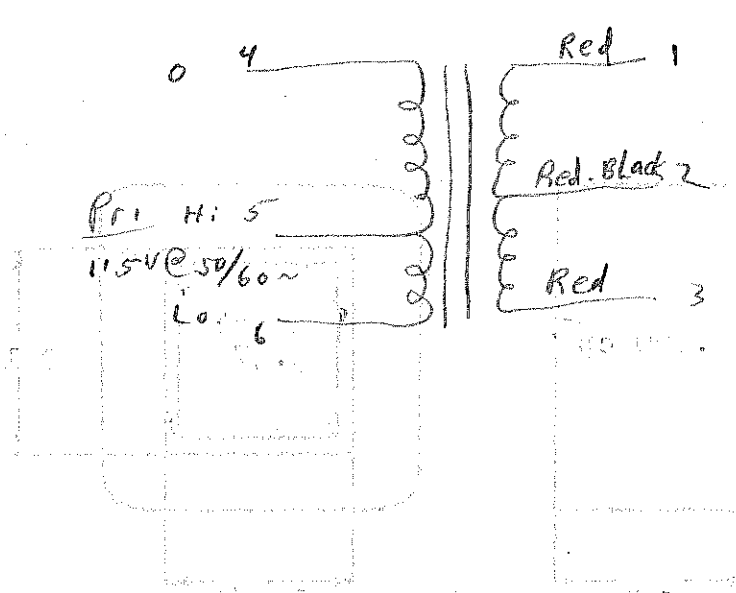 0 4
Red 1
Red. Black 2
Pri Hi 5
115V@ 50/60~
Lo. 6
Red 3